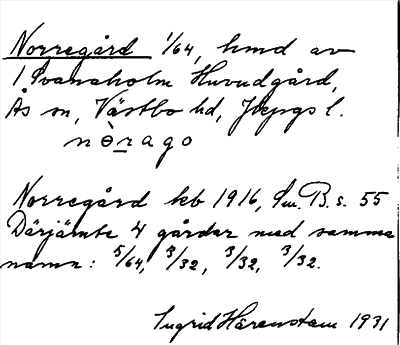 Norregård 1/64, hmd av
1 Svanaholm Huvudgård,
Ås sn, Västbo hd, Jkpgs l.
nòrago
Norregård kb 1916, Sm. B. s. 55
Därjämte 4 gårdar med samma
namn: 5/64, 3/32, 3/32, 3/32.
Ingrid Härenstam 1931